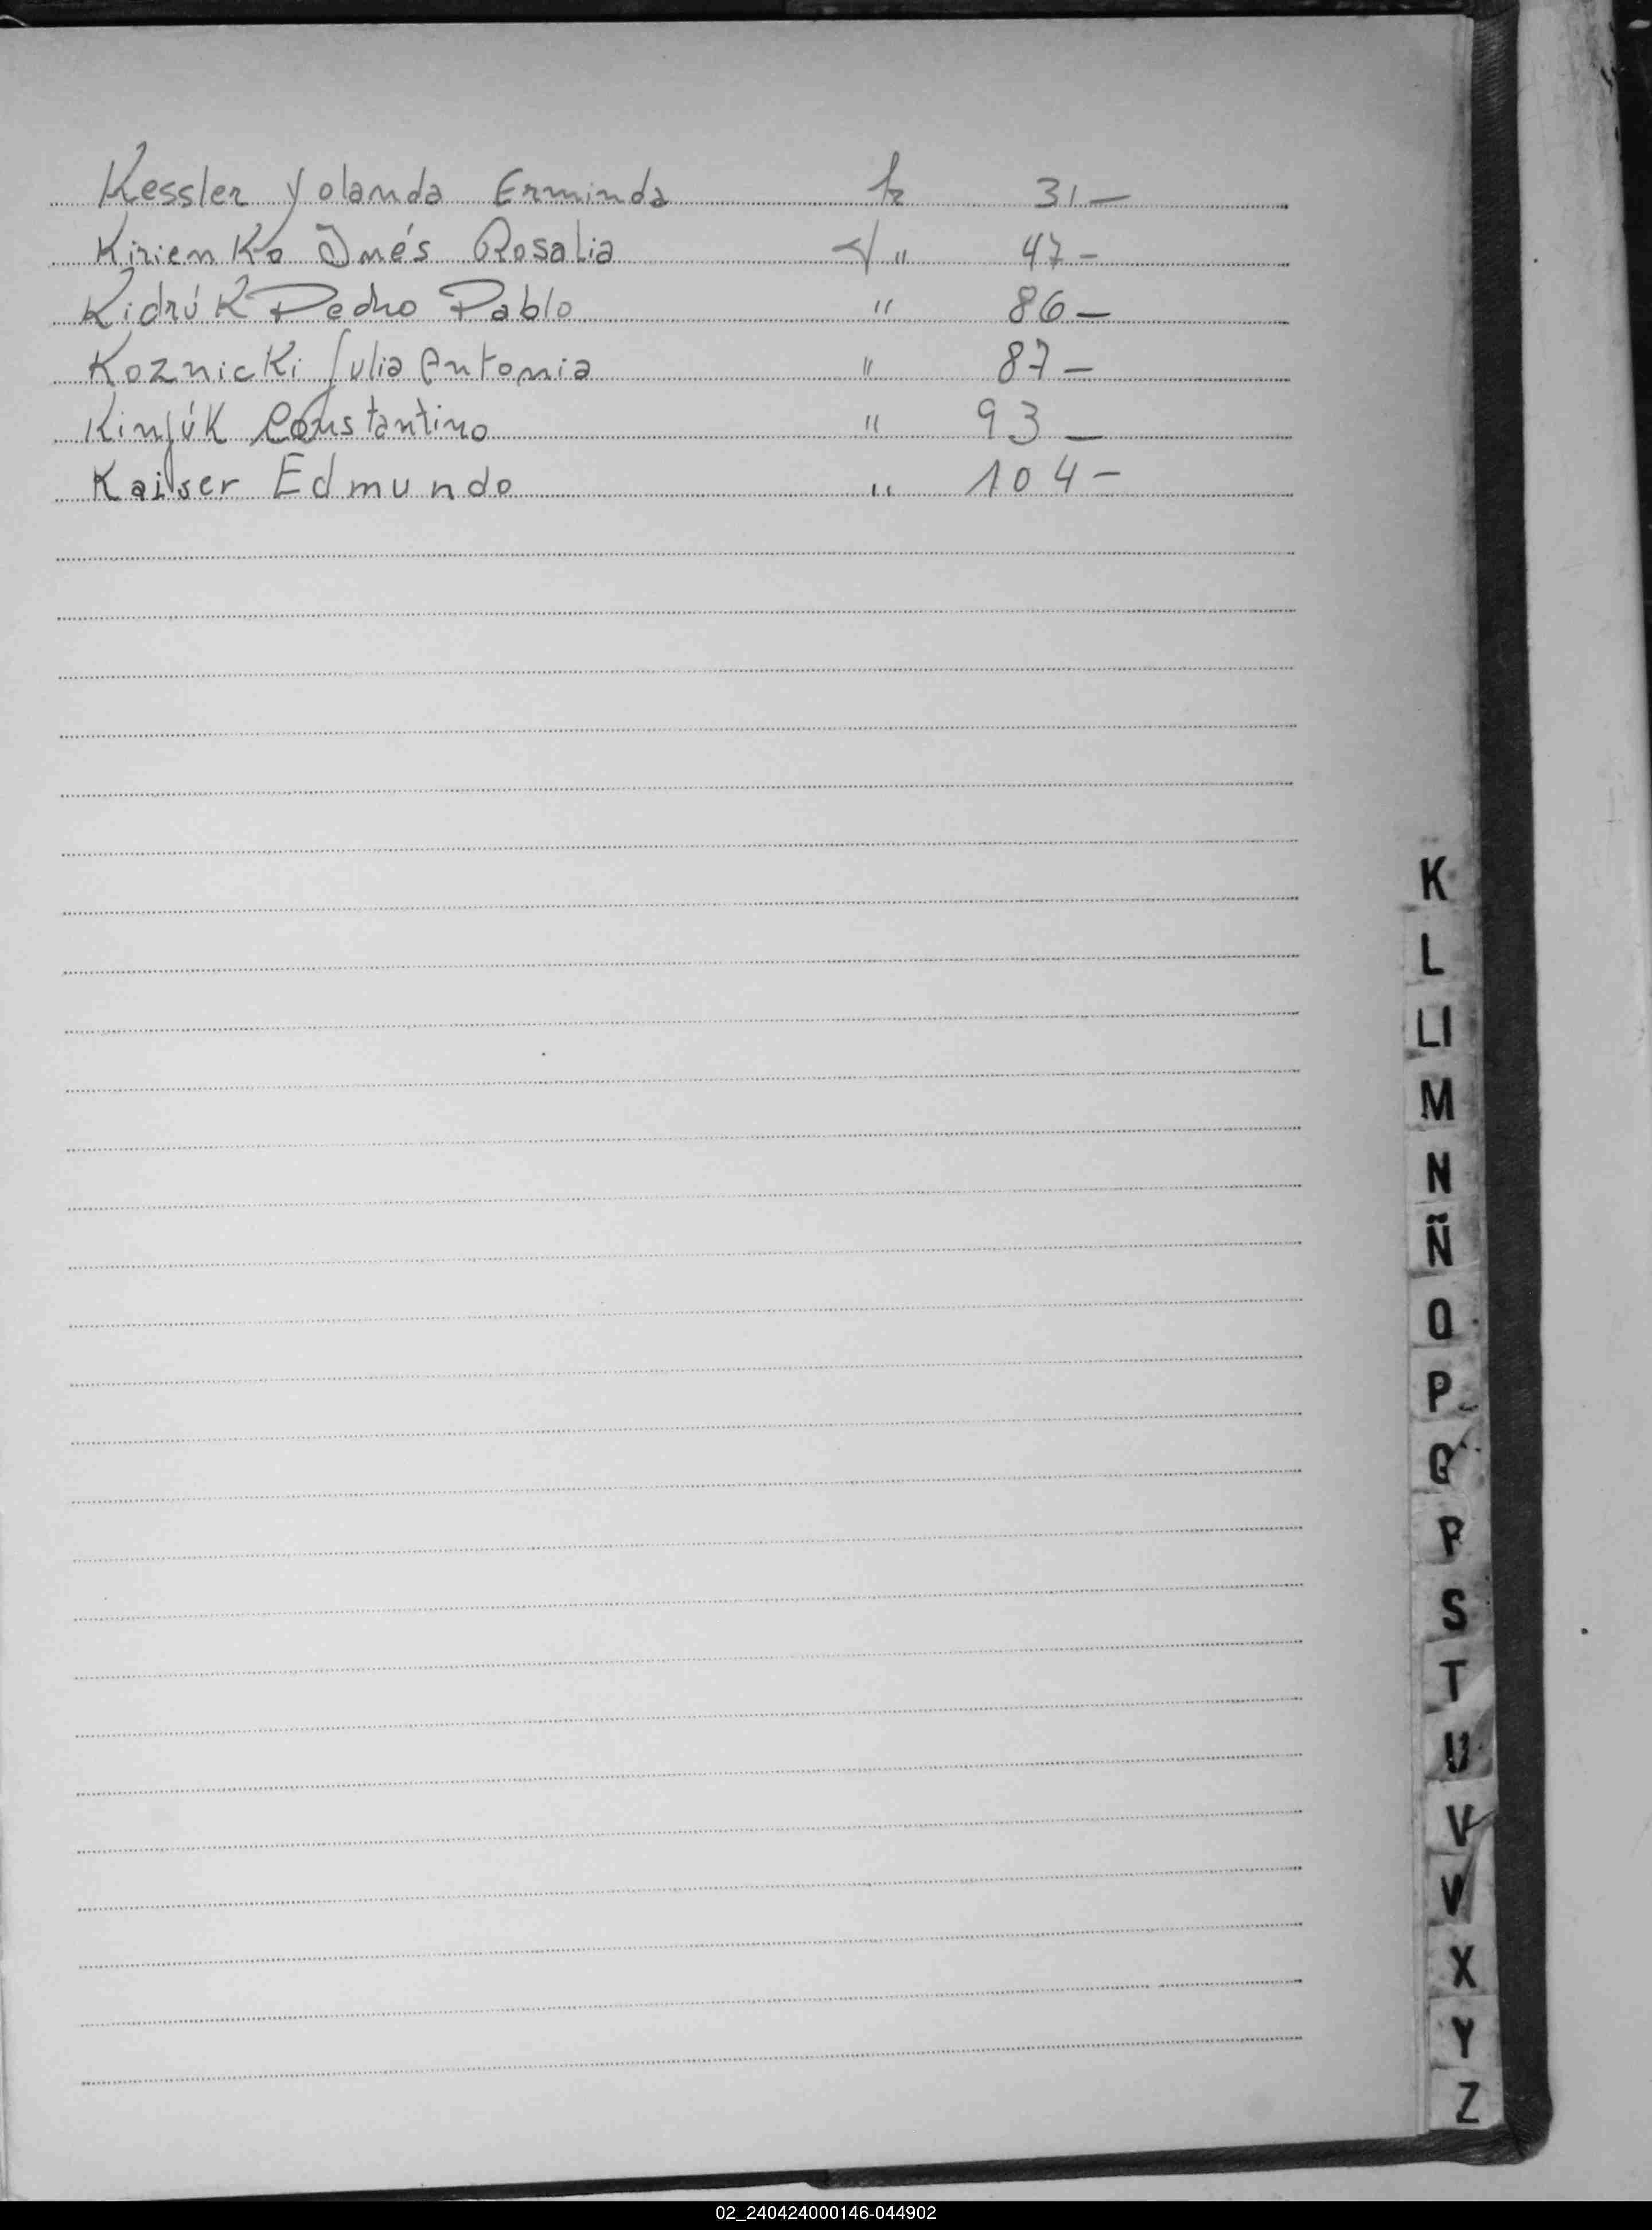 Kessler Yolanda Erminda fz 31-
Kirienko Inés Rosalia " 47-
Kidrúk Pedro Pablo " 86-
Koznicki Julia Antonia " 87-
Kinjúk Constantino " 93-
Kaiser Edmundo " 104-
K
L
Ll
M
N
Ñ
O
P
Q
R
S
T
U
V
W
X
Y
Z
02_240424000146-044902